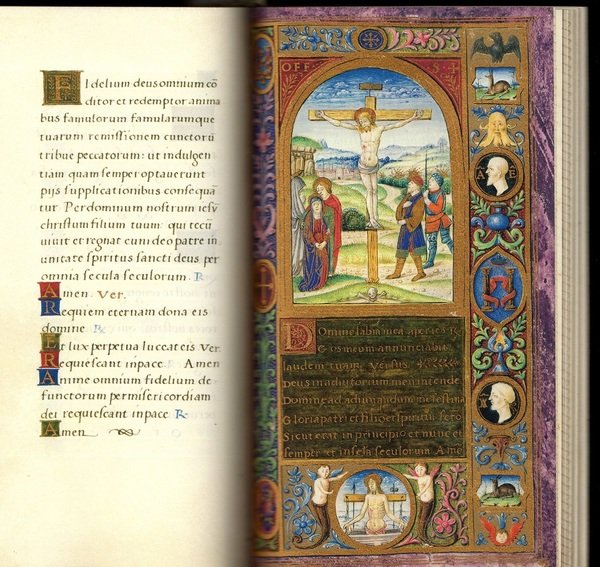 FIdelium deus omnium cō
ditor et redemptor anima
bus famulorum famularumque
tuarum remissionem cunctorū
tribue peccatorum: ut indulgen
tiam quam semper optauerunt
pijs supplicationibus consequā
tur Per dominum nostrum iesū
christum filium tuum: qui tecū
uiuit et regnat cum deo patre in
unitate spiritus sancti deus per
omnia secula seculorum. ℞
Amen Ver.
Requiem eternam dona eis
domine ℞
Et lux perpetua luceat eis Ver
Requiescant in pace ℞ Amen
Anime omnium fidelium de
functorum per misericordiam
dei requiescant in pace ℞
Amen
OFF S +
Domine labia mea aperies R
os meum annunciabit
laudem tuam Versus
Deus in adiutorium meum intende
Domine ad adiuuandum me festina
Gloria patri et filio et spiritui scto
Sicut erat in principio et nunc et
semper et in secula seculorum Ame
A E